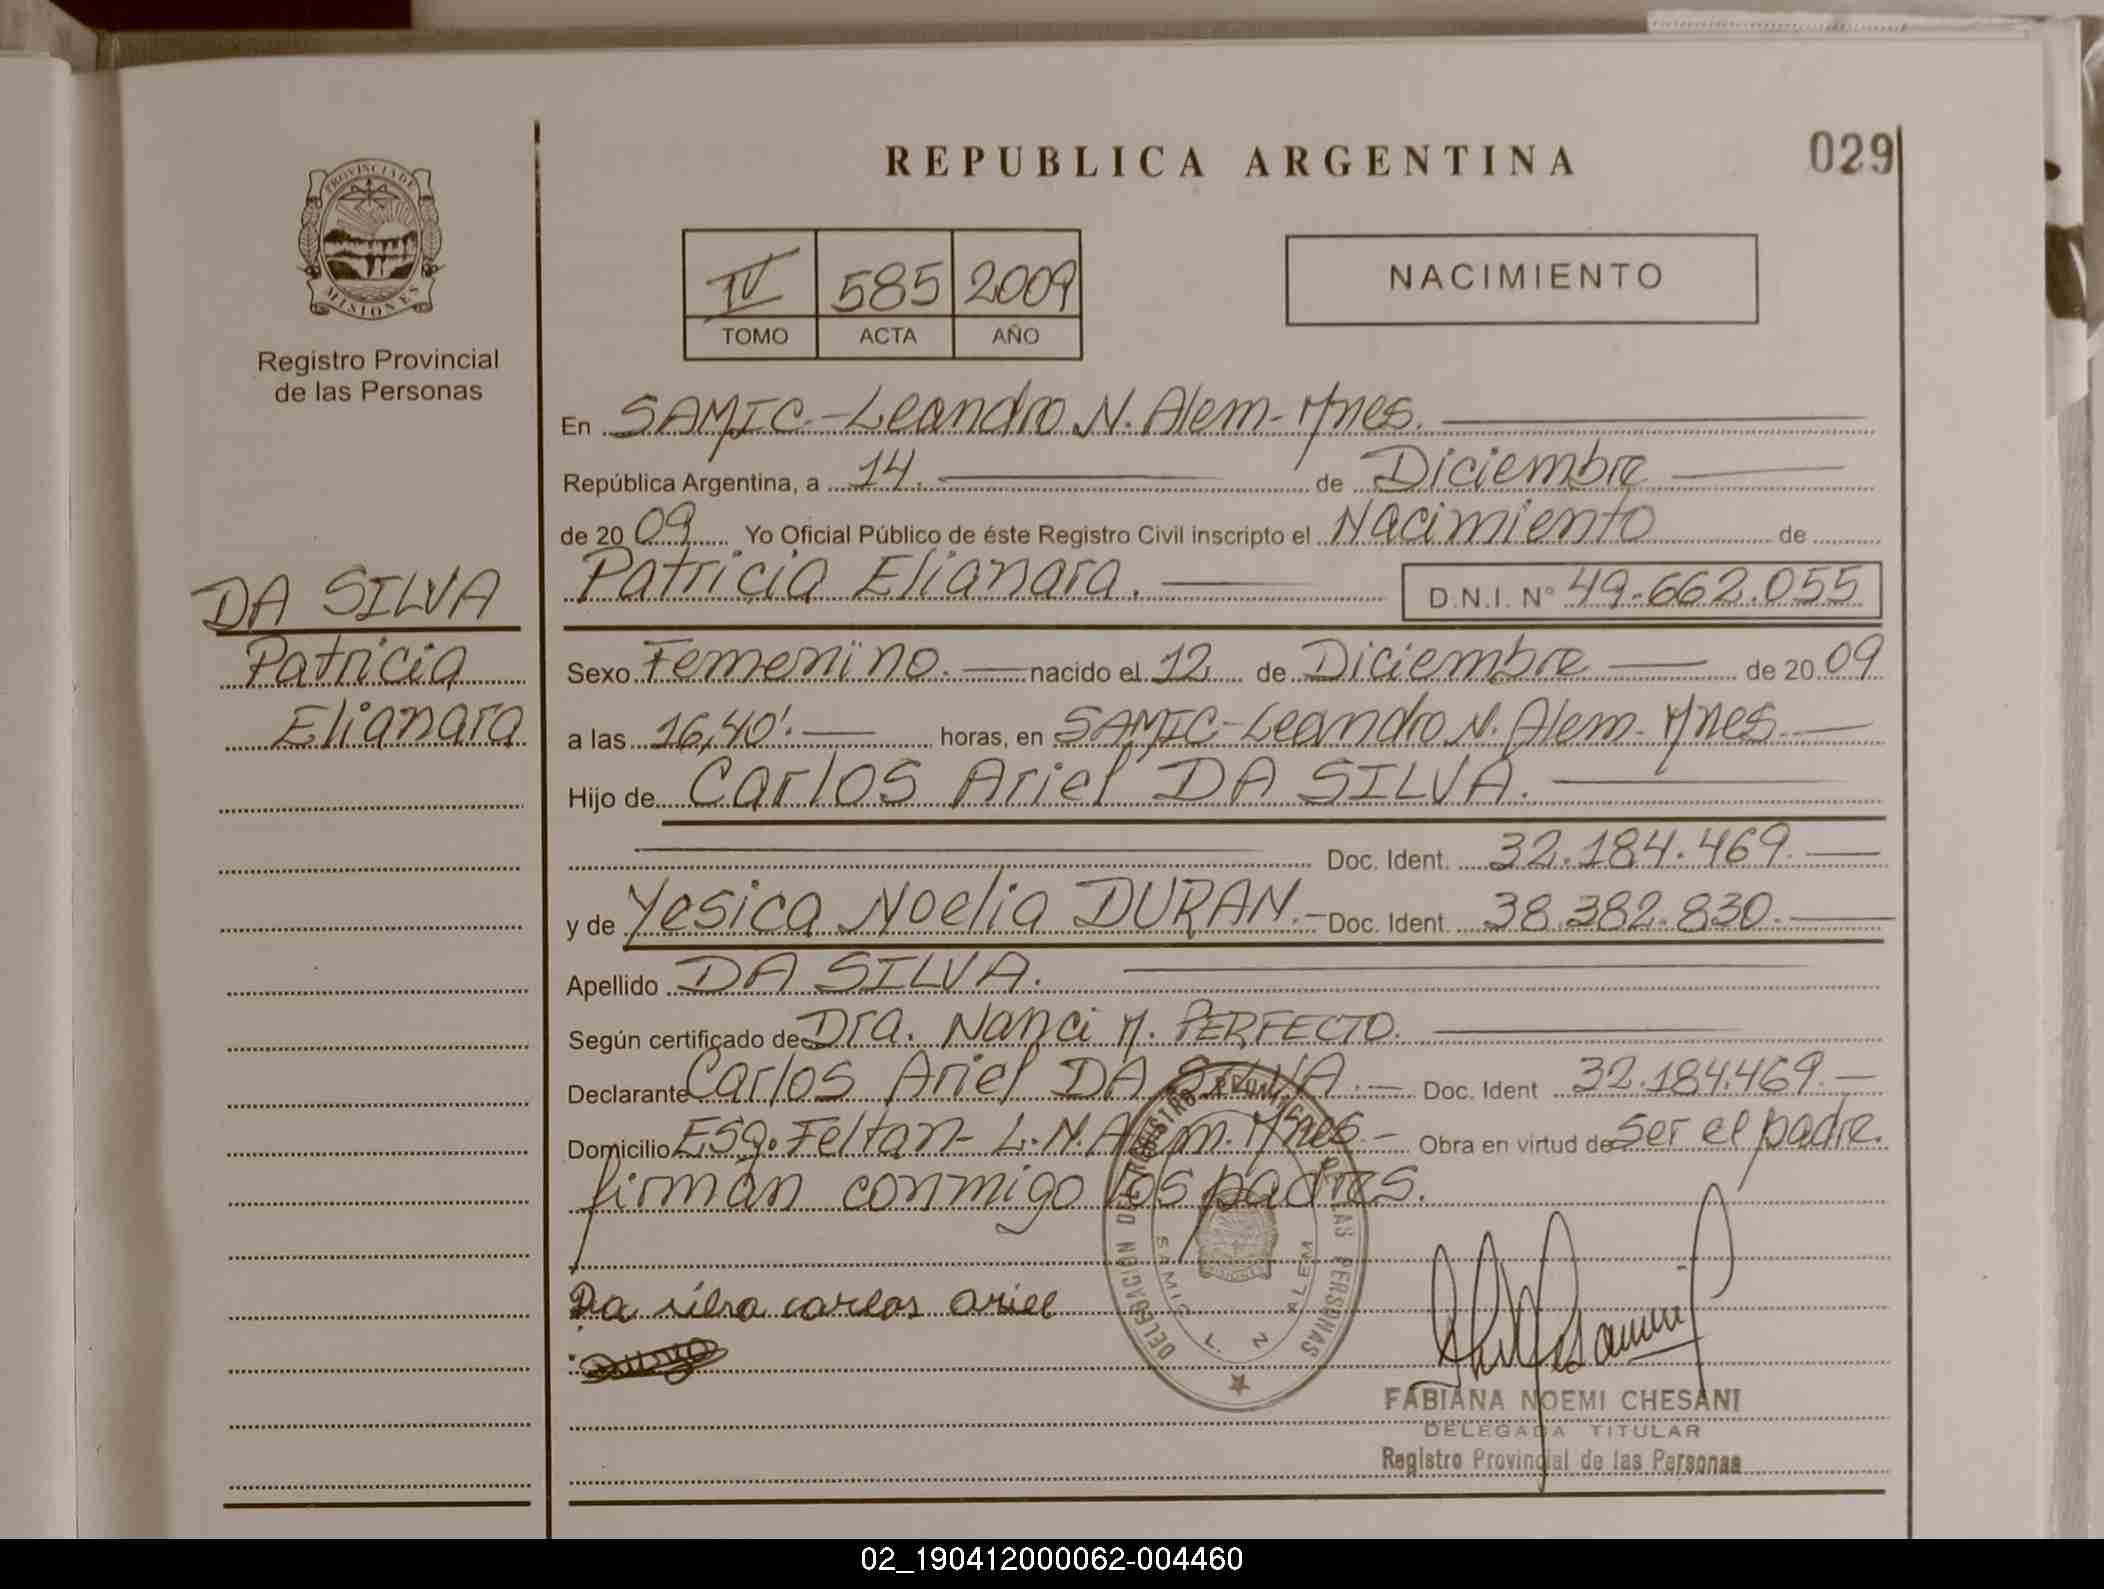 REPUBLICA ARGENTINA
029
PROVINCIA DE
MISIONES
Registro Provincial
de las Personas
IV 585 2009
TOMO ACTA AÑO
NACIMIENTO
En SAMIC.-Leandro N. Alem-Mnes.
República Argentina, a 14. de Diciembre
de 20 09 Yo Oficial Público de éste Registro Civil inscripto el Nacimiento de
Patricia Elianara.
D.N.I. N° 49.662.055
DA SILVA
Patricia
Elianara
Sexo Femenino. nacido el 12 de Diciembre de 20 09
a las 16,40'. horas, en SAMIC-Leandro N. Alem-Mnes.
Hijo de Carlos Ariel DA SILVA.
Doc. Ident. 32.184.469.
y de Yesica Noelia DURAN.- Doc. Ident. 38.382.830.
Apellido DA SILVA.
Según certificado de Dra. Nanci M. PERFECTO.
Declarante Carlos Ariel DA SILVA. Doc. Ident 32.184.469.
Domicilio Esq. Feltan- L.N.Alem. Mnes.- Obra en virtud de Ser el padre.
firman conmigo los padres.
Da silva carlos ariel
DELEGACION DEL REGISTRO PROVINCIAL DE LAS PERSONAS
SAMIC L. N ALEM
FABIANA NOEMI CHESANI
DELEGADA TITULAR
Registro Provincial de las Personas
02_190412000062-004460